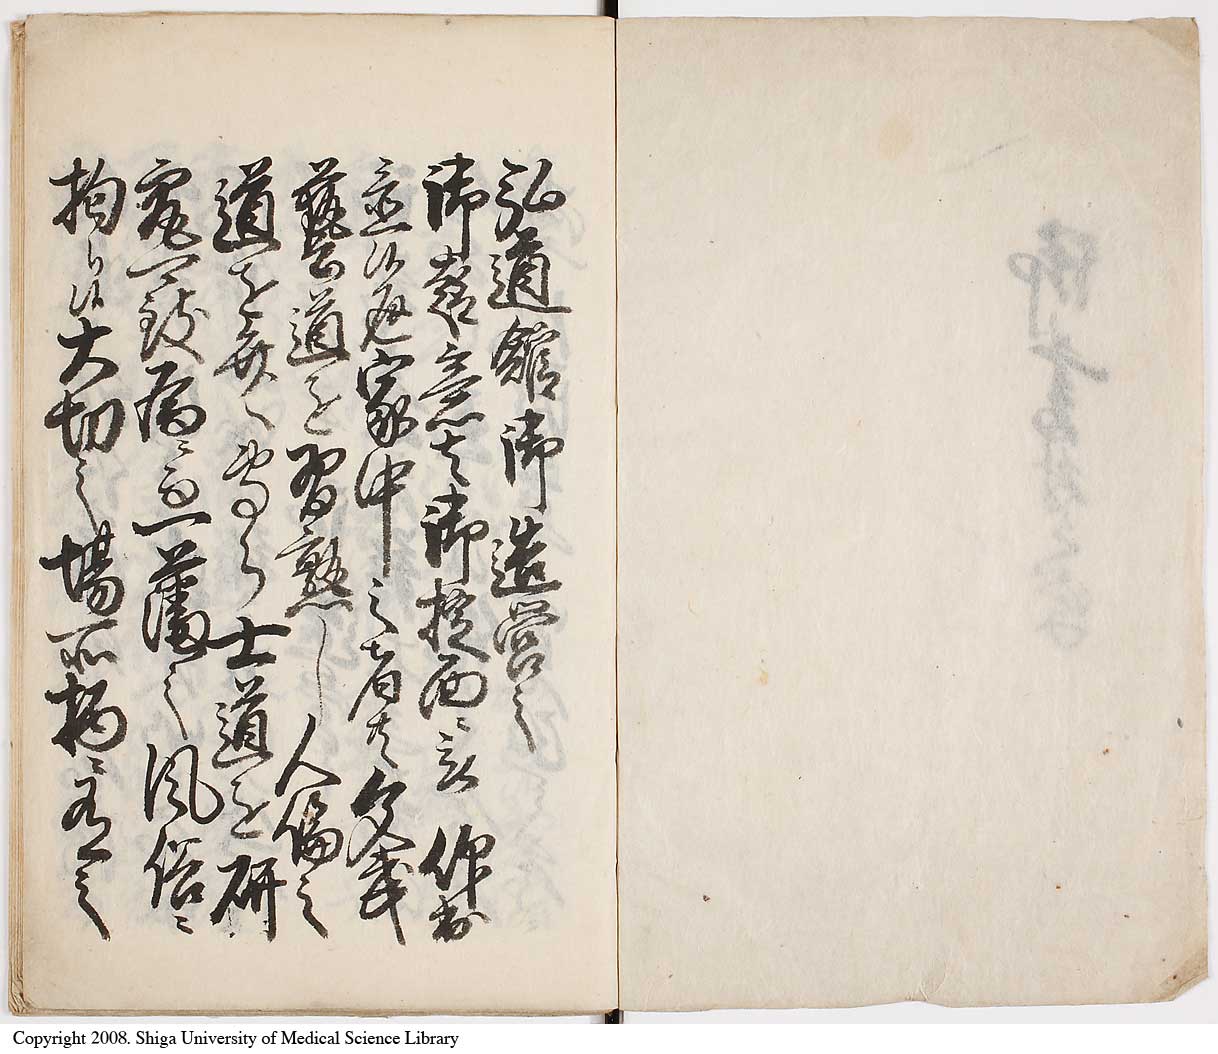 弘道館御造営之
御趣意者御掟面ニ被 仰出
置候通家中之者共文武
藝道を習熟し人倫之
道を弁へ専ら士道を研
究可致為ニ而一藩之風俗ニ
拘り候大切之場所柄ニ有之
Copyright 2008. Shiga University of Medical Science Library